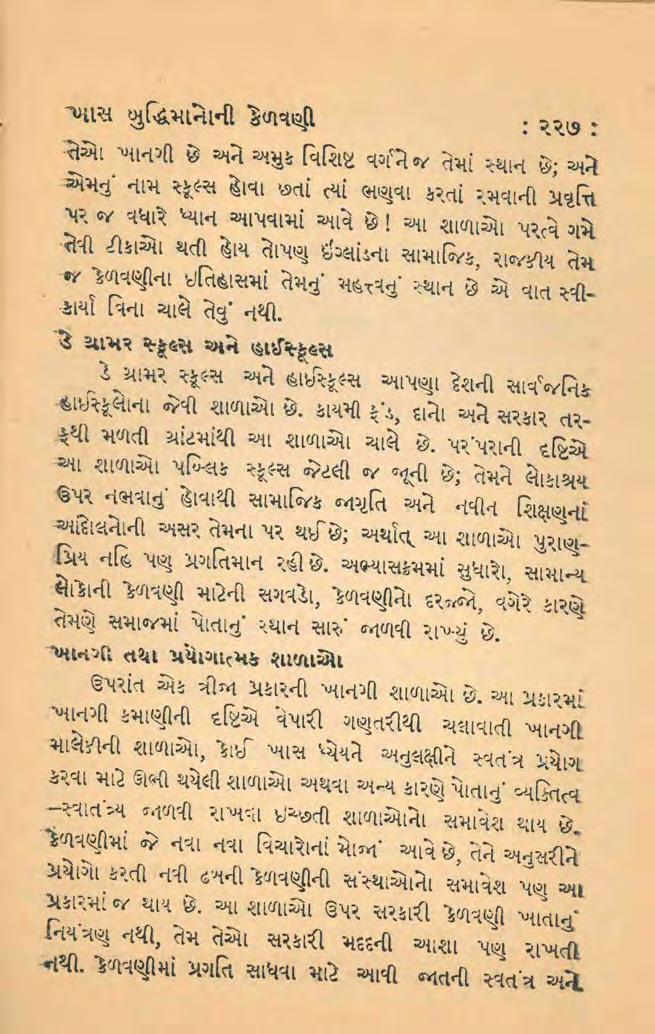 ખાસ બુદ્ધિમાનોની કેળવણી : ૨૨૭ :
તેઓ ખાનગી છે અને અમુક વિશિષ્ટ વર્ગને જ તેમાં સ્થાન છે; અને
એમનું નામ સ્કૂલ્સ હોવા છતાં ત્યાં ભણવા કરતાં રમવાની પ્રવૃત્તિ
પર જ વધારે ધ્યાન આપવામાં આવે છે! આ શાળાઓ પરત્વે ગમે
તેવી ટીકાઓ થતી હોય તોપણ ઇંગ્લાંડના સામાજિક, રાજકીય તેમ
જ કેળવણીના ઇતિહાસમાં તેમનું મહત્ત્વનું સ્થાન છે એ વાત સ્વી-
કાર્યા વિના ચાલે તેવું નથી.
ડે ગ્રામર સ્કૂલ્સ અને હાઈસ્કૂલ્સ
ડે ગ્રામર સ્કૂલ્સ અને હાઈસ્કૂલ્સ આપણા દેશની સાર્વજનિક
હાઈસ્કૂલોના જેવી શાળાઓ છે. કાયમી ફંડ, દાનો અને સરકાર તર-
ફથી મળતી ગ્રાંટમાંથી આ શાળાઓ ચાલે છે. પરંપરાની દૃષ્ટિએ
આ શાળાઓ પબ્લિક સ્કૂલ્સ જેટલી જ જૂની છે; તેમને લોકાશ્રય
ઉપર નભવાનું હોવાથી સામાજિક જાગૃતિ અને નવીન શિક્ષણનાં
આંદોલનોની અસર તેમના પર થઈ છે; અર્થાત્ આ શાળાઓ પુરાણ-
પ્રિય નહિ પણ પ્રગતિમાન રહી છે. અભ્યાસક્રમમાં સુધારો, સામાન્ય
લોકોની કેળવણી માટેની સગવડો, કેળવણીનો દરજ્જો, વગેરે કારણે
તેમણે સમાજમાં પોતાનું સ્થાન સારું જાળવી રાખ્યું છે.
ખાનગી તથા પ્રયોગાત્મક શાળાઓ
ઉપરાંત એક ત્રીજા પ્રકારની ખાનગી શાળાઓ છે. આ પ્રકારમાં
ખાનગી કમાણીની દૃષ્ટિએ વેપારી ગણતરીથી ચલાવાતી ખાનગી
માલેકીની શાળાઓ, કોઈ ખાસ ધ્યેયને અનુલક્ષીને સ્વતંત્ર પ્રયોગ
કરવા માટે ઊભી થયેલી શાળાઓ અથવા અન્ય કારણે પોતાનું વ્યક્તિત્વ
–સ્વાતંત્ર્ય જાળવી રાખવા ઇચ્છતી શાળાઓનો સમાવેશ થાય છે.
કેળવણીમાં જે નવા નવા વિચારોનાં મોજાં આવે છે, તેને અનુસરીને
પ્રયોગો કરતી નવી ઢબની કેળવણીની સંસ્થાઓનો સમાવેશ પણ આ
પ્રકારમાં જ થાય છે. આ શાળાઓ ઉપર સરકારી કેળવણી ખાતાનું
નિયંત્રણ નથી, તેમ તેઓ સરકારી મદદની આશા પણ રાખતી
નથી. કેળવણીમાં પ્રગતિ સાધવા માટે આવી જાતની સ્વતંત્ર અને